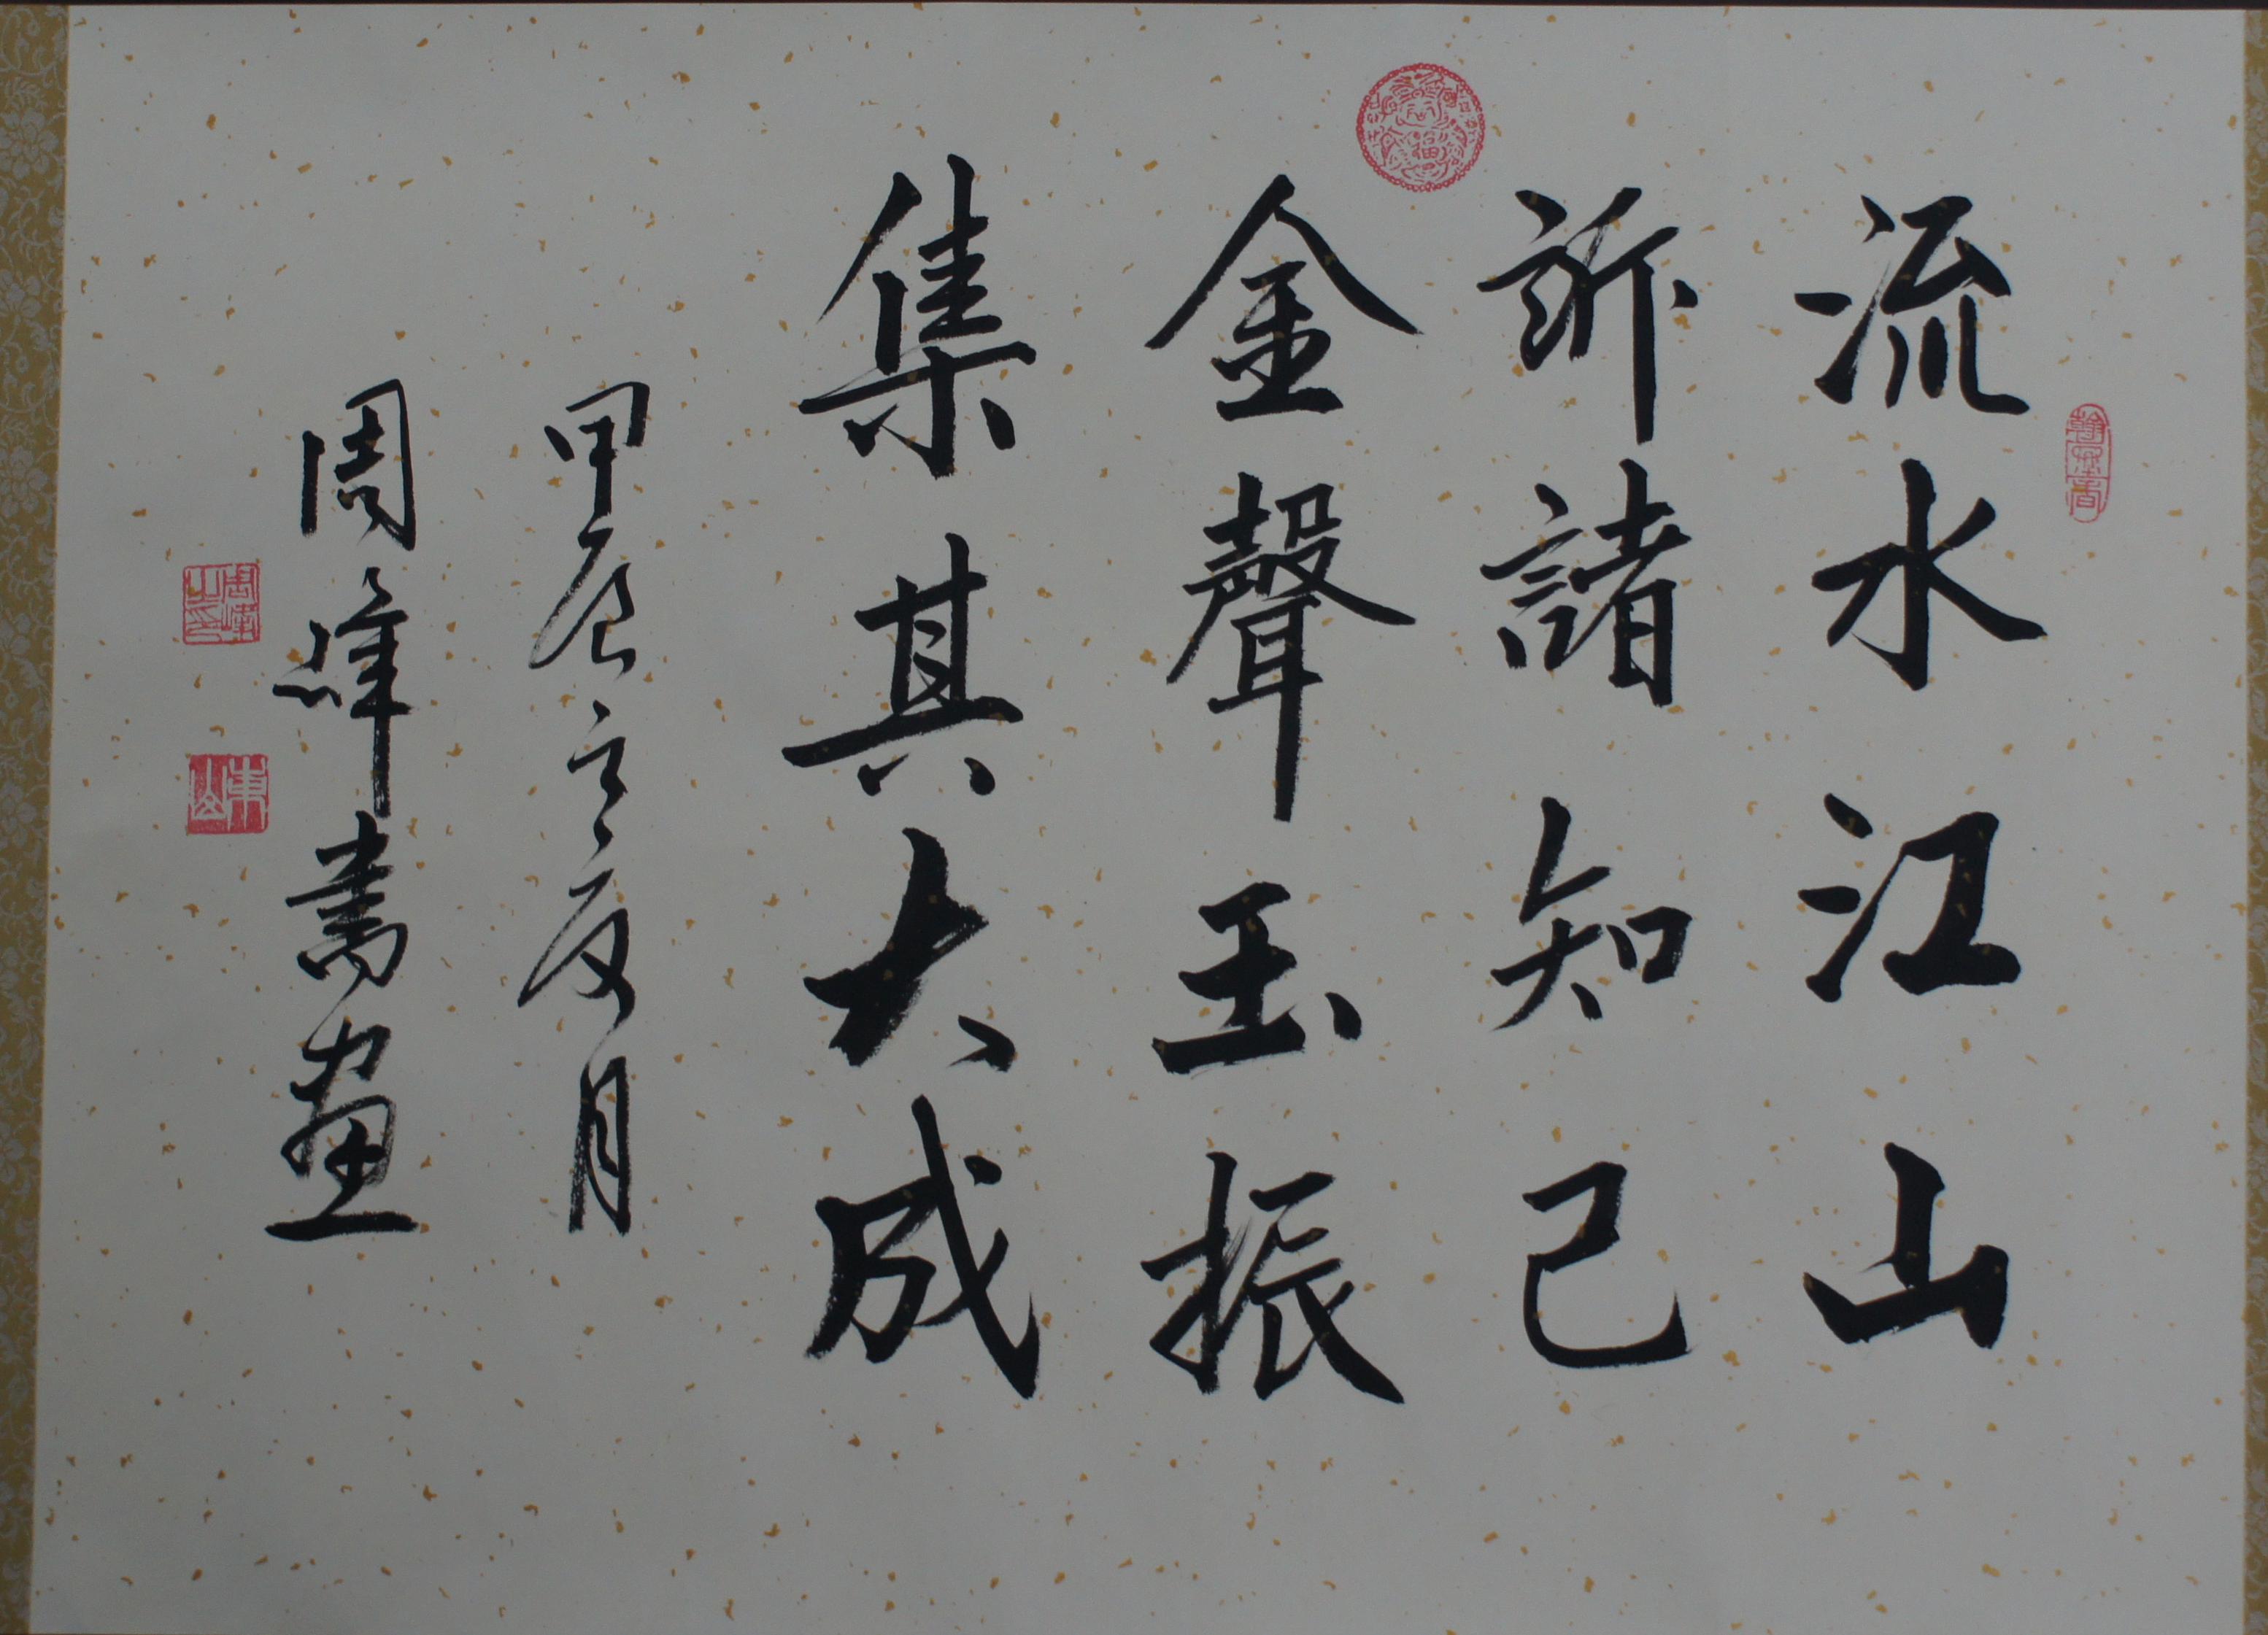 流水江山
訴諸知己
金聲玉振
集其大成
甲辰之夏月
周峰書畫
翰墨香
周峰之印
東山
福